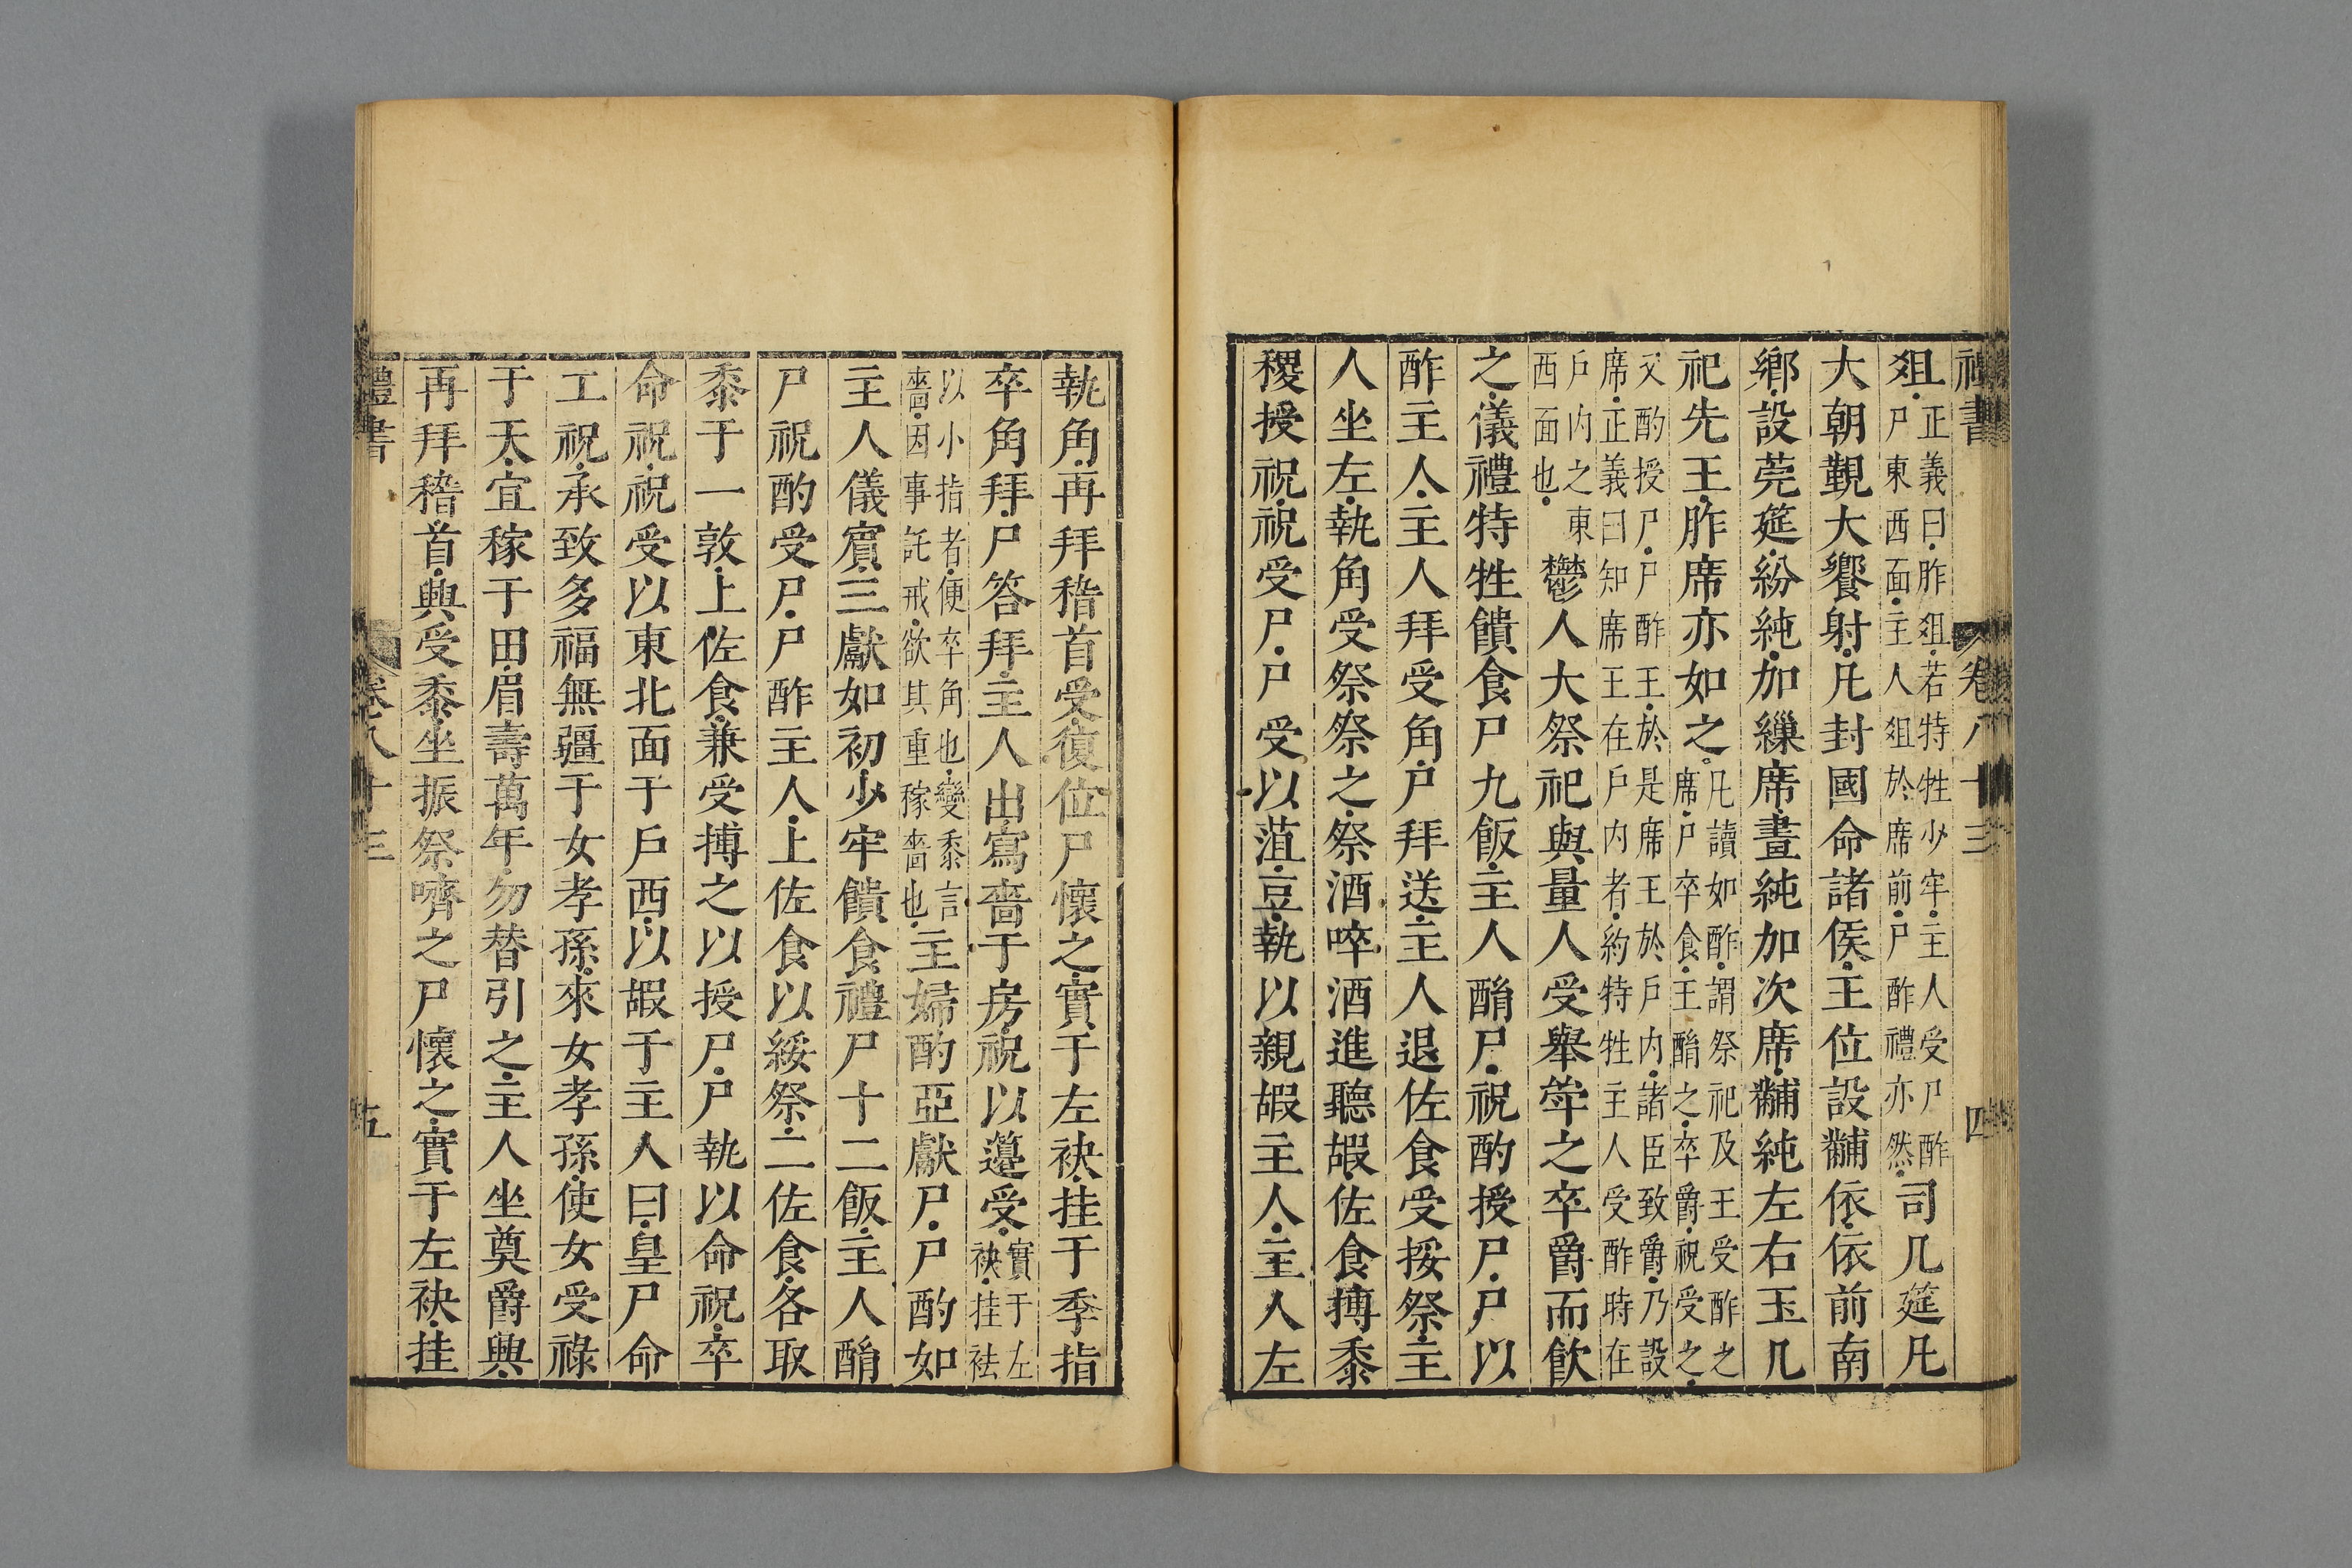 禮書 卷八十三 四
爼正義曰胙爼若特牲少牢主人受尸酢
尸東西面主人爼於席前尸酢禮亦然司几筵凡
大朝覲大饗射凡封國命諸侯王位設黼依依前南
鄉設莞筵紛純加繅席畫純加次席黼純左右玉几
祀先王胙席亦如之凡讀如酢謂祭祀及王受酢之
席戶卒食王酳之卒爵祝受之
又酌授尸尸酢王於是席王於戶内諸臣致爵乃設
席正義曰知席王在戶内者約特牲主人受酢時在
戶内之東
西面也鬱人大祭祀與量人受舉斝之卒爵而飲
之儀禮特牲饋食尸九飯主人酳尸祝酌授尸尸以
酢主人主人拜受角尸拜送主人退佐食受挼祭主
人坐左執角受祭祭之祭酒啐酒進聽嘏佐食摶黍
稷授祝祝受尸尸受以菹豆執以親嘏主人主人左
執角再拜稽首受復位尸懷之實于左袂挂于季指
卒角拜尸答拜主人出寫嗇于房祝以籩受實于左
袂挂袪
以小指者便卒角也變黍言
嗇因事託戒欲其重稼嗇也主婦酌亞獻尸尸酌如
主人儀賓三獻如初少牢饋食禮尸十二飯主人酳
尸祝酌受尸尸酢主人上佐食以綏祭二佐食各取
黍于一敦上佐食兼受摶之以授尸尸執以命祝卒
命祝祝受以東北面于戶西以嘏于主人曰皇尸命
工祝承致多福無疆于女孝孫來女孝孫使女受祿
于天宜稼于田眉壽萬年勿替引之主人坐奠爵興
再拜稽首興受黍坐振祭嚌之尸懷之實于左袂挂
禮書 卷八十三 五